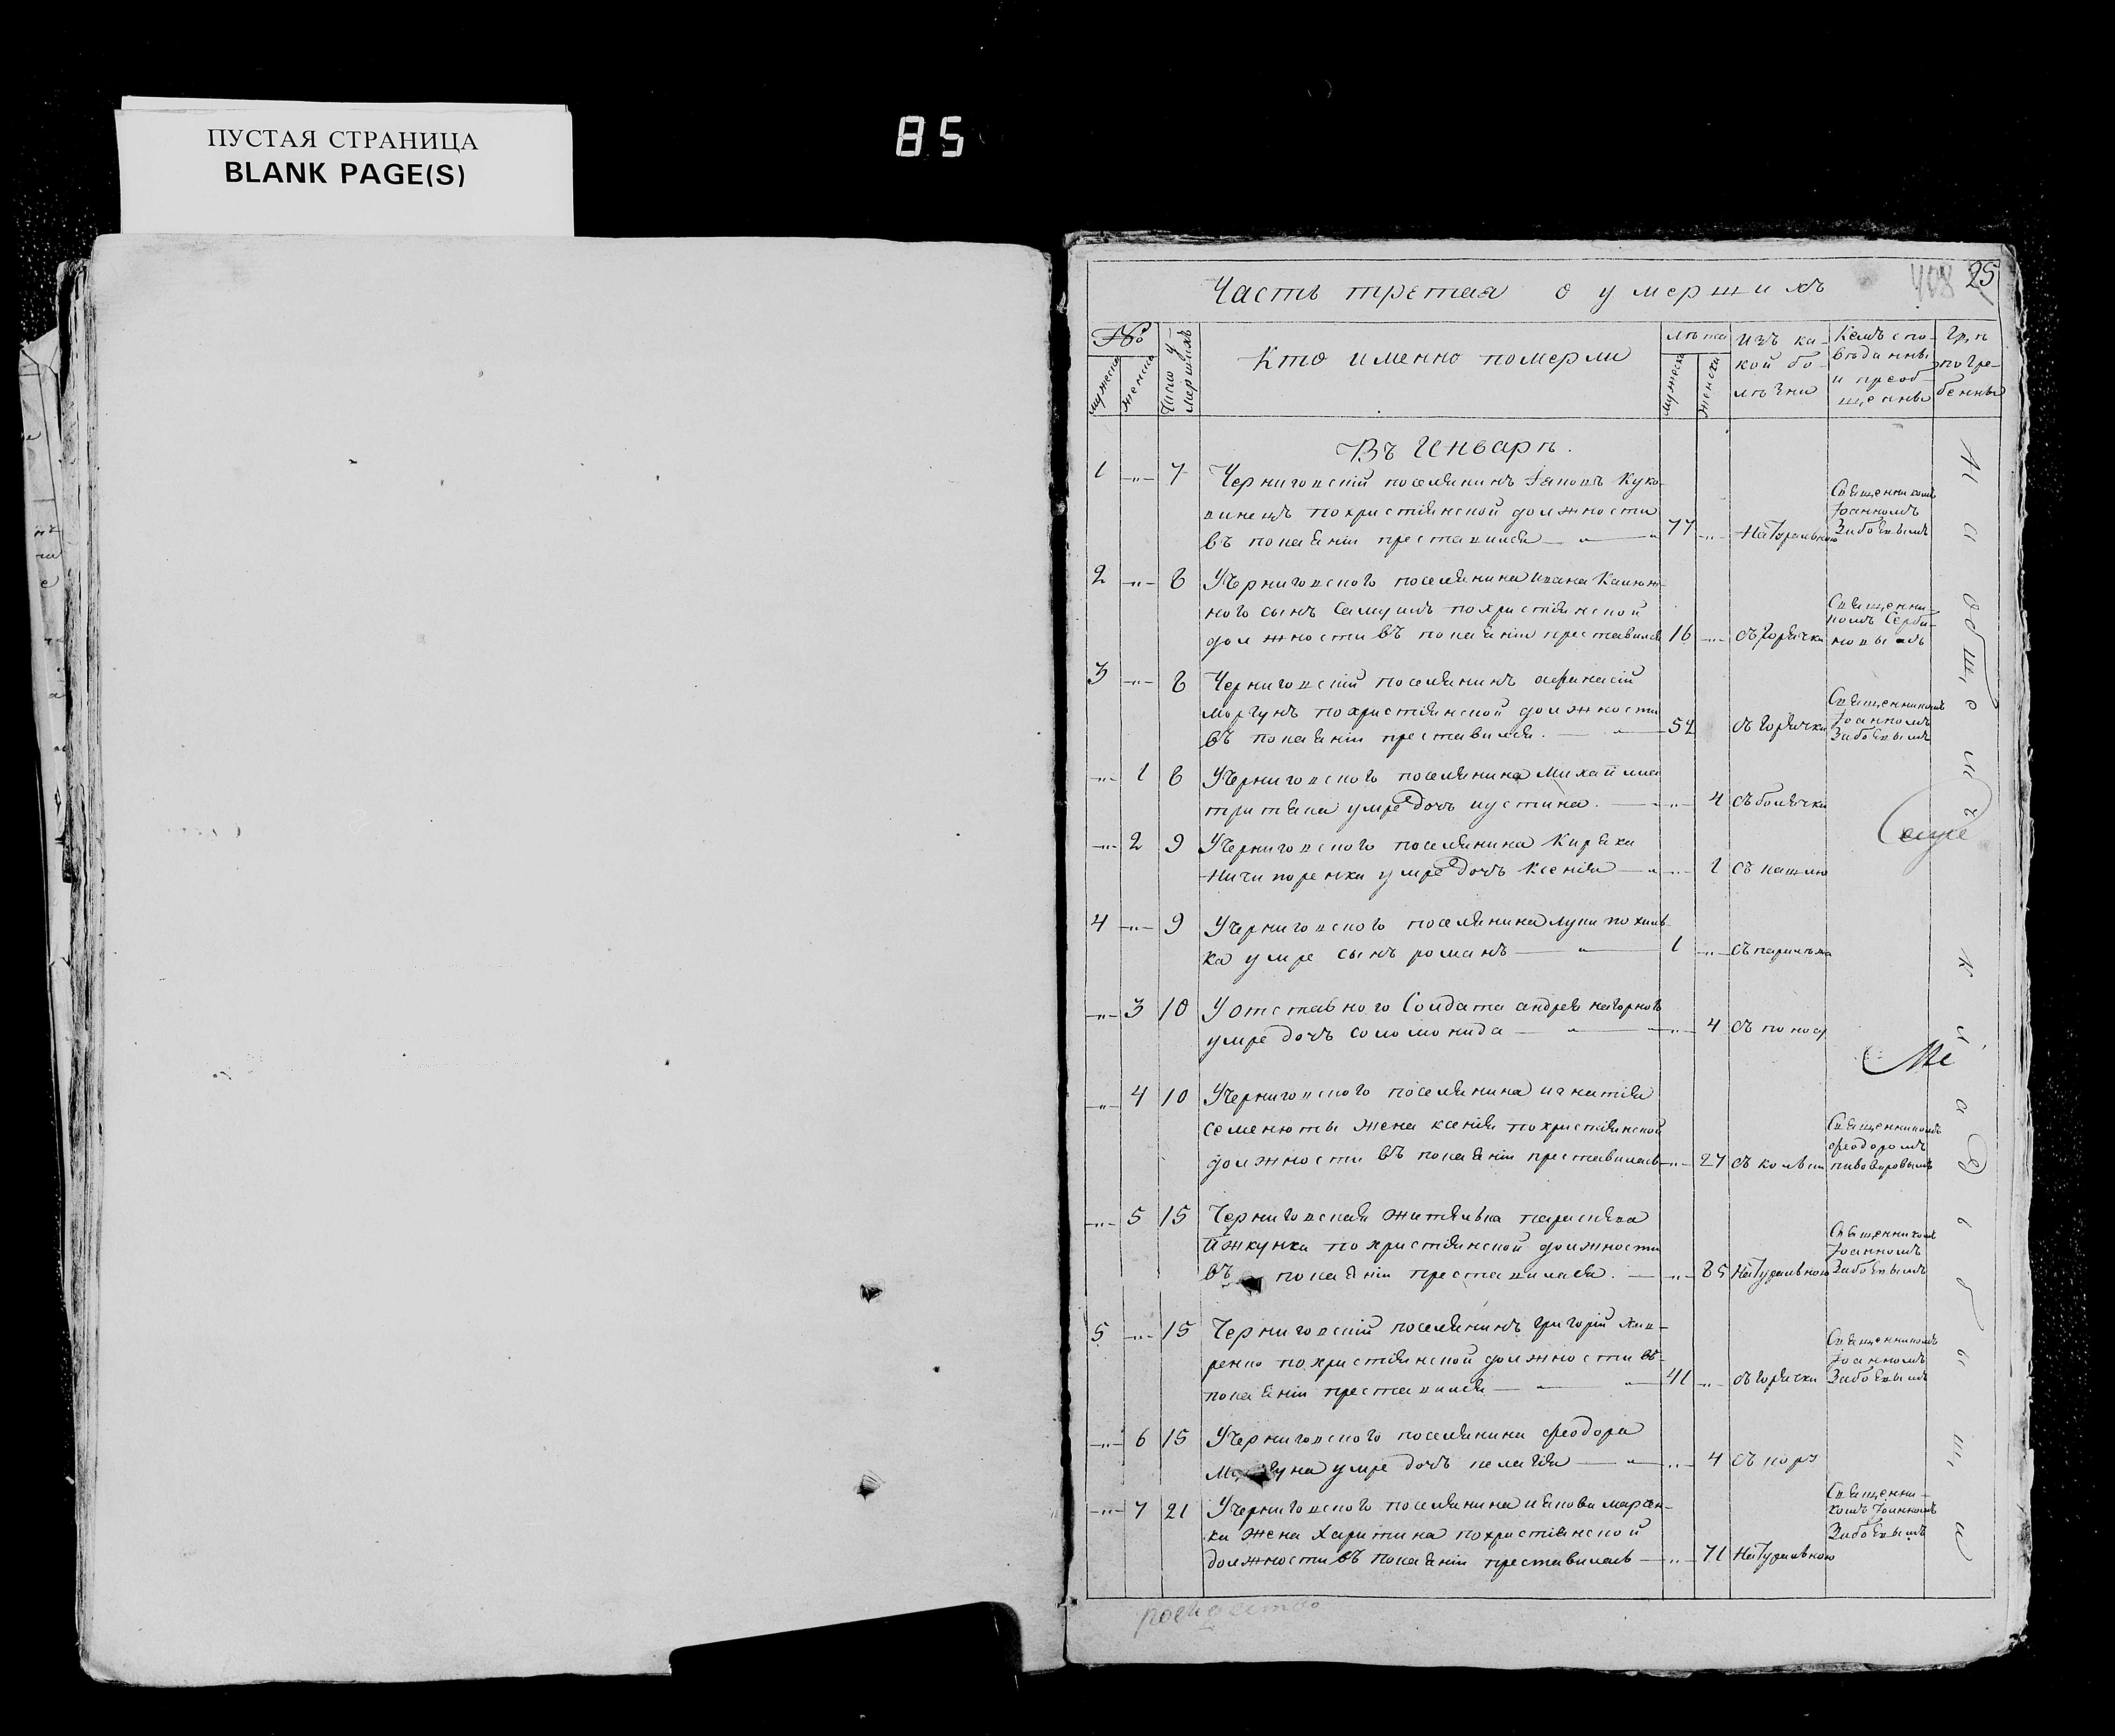 ПУСТАЯ СТРАНИЦА
BLANK PAGE(S)
85
25
Часть третая о умершихъ
№
мужеска
женска
Число у-
мершихъ
Кто именно померли
лѣта
мужеска
женска
Изъ ка-
кой бо-
лѣзни
Кемъ спо-
вѣданны
и преоб-
щенны
Гдѣ
погре-
бенны
Въ Генварѣ.
1 -„- 7 Черниговскій поселянинъ Іяковъ Куко-
винецъ похристіянской должности
въ покаяніи преставился 77 Натуральною
Священникомъ
Іоанномъ
Забоевымъ
2 -„- 8 Учерниговского поселянина Ивана Калюж-
ного сынъ Самуилъ похристіянской
должности въ покаяніи преставился 16 съ Горячки
Священни-
комъ Серби-
новымъ
3 -„- 8 Черниговскій поселянинъ афанасій
Моргунъ похристіянской должности
въ покаяніи преставился. 52 съ Горячки
Священникомъ
Іоанномъ
Забоевымъ
-„- 1 8 Учерниговского поселянина Михайла
тритяка умре дочь иустина. 4 съ болячки
-„- 2 9 Учерниговского поселянина Киряка
Ничипоренка умре дочь Ксенія 1 съ кашлю
4 -„- 9 Учерниговского поселянина луки похиль-
ка умре сынъ романъ 1
-„- 3 10 У отставного Солдата андрея нагорного
умре дочь соломонида 4 съ поносу
-„- 4 10 Учерниговского поселянина игнатія
семенюты жена ксенія похристіянской
должности въ покаяніи преставилась 27 съ кольки
Священникомъ
феодоромъ
пивоваровымъ
-„- 5 15 Черниговская жителька параскева
похристіянской должности
въ покаяніи преставилася. 85 Натуральною
Священникомъ
Іоанномъ
Забоевымъ
5 -„- 15 Черниговскій поселянинъ григорій
ренко похристіянской должности въ-
покаяніи преставился 41 съ горячки
Священникомъ
Іоанномъ
Забоевымъ
-„- 6 15 Учерниговского поселянина феодора
умре дочь пелагія 4 съ кору
-„- 7 21 Учерниговского поселянина иякова марчен-
ка жена Харитина похристіянской
должности въ покаяніи преставилась 71 Натуральною
Священни-
комъ Іоанномъ
Забоевымъ
На общемъ кладбыщи